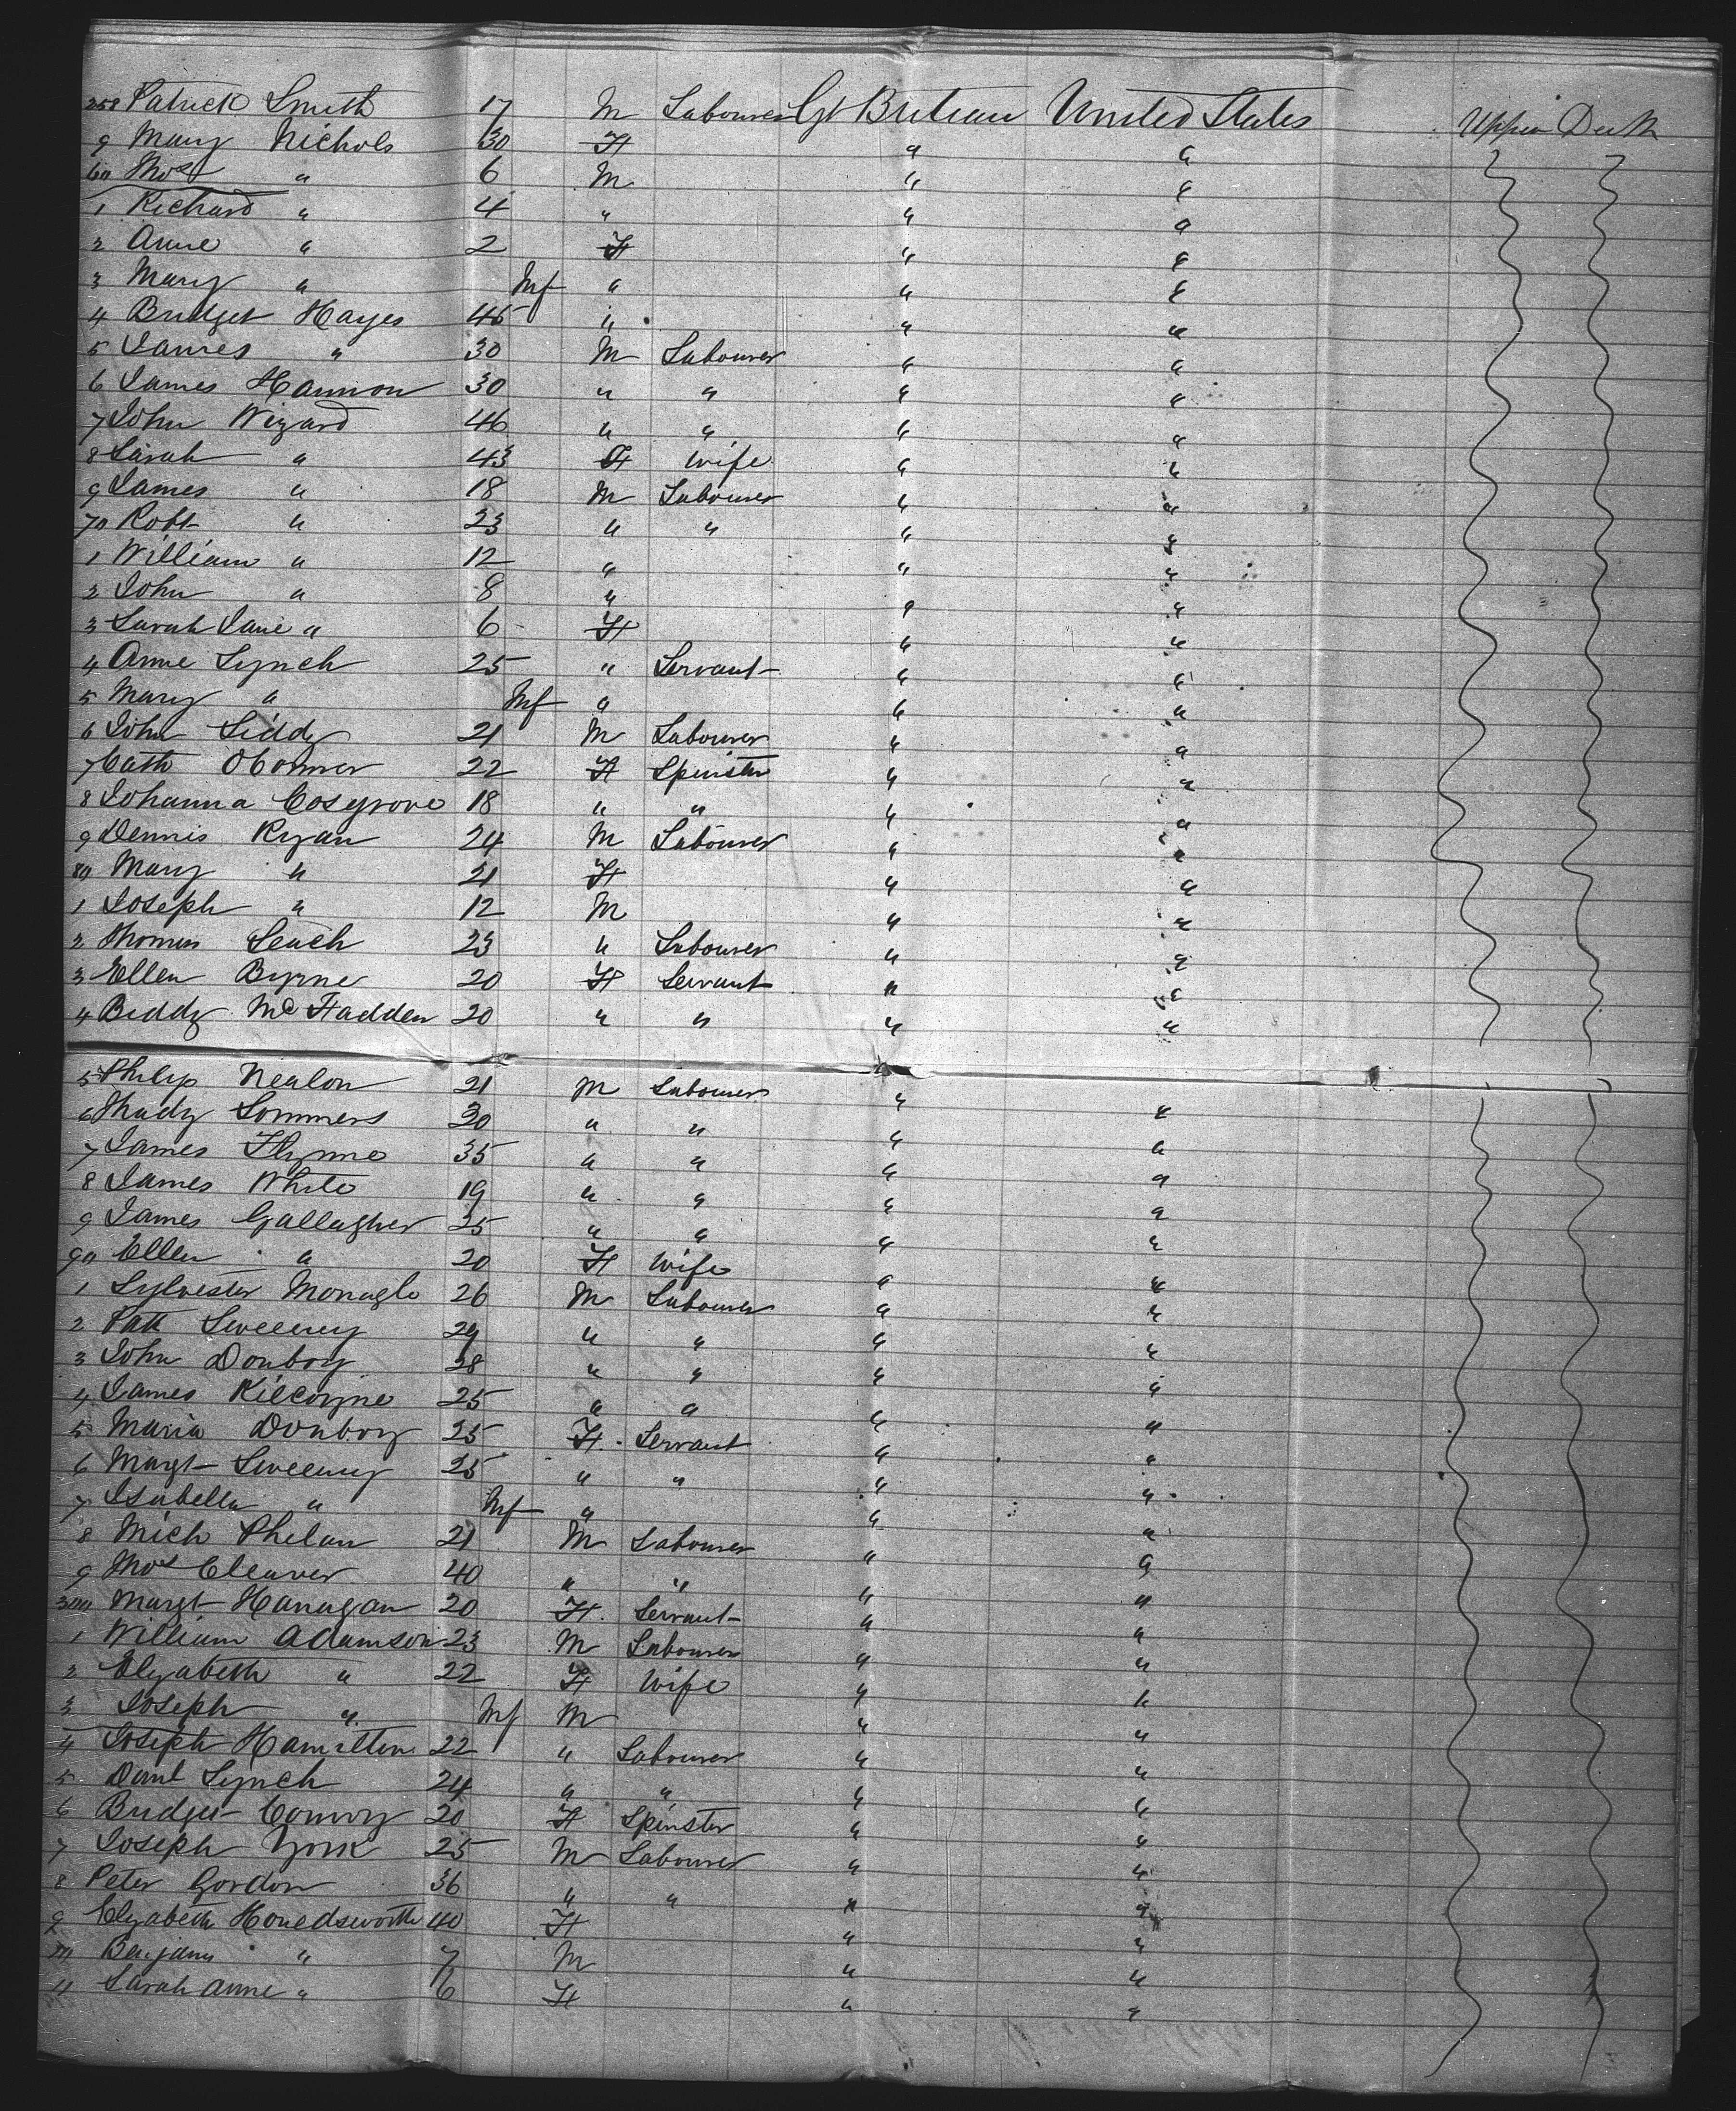 258 Patrick Smith 17 M Labourer Gt Britian United States Upper Deck
9 Mary Nichols 30 F " "
60 Thos " 6 M " "
1 Richard " 4 " " "
2 Anne " 2 F " "
3 Mary " Inf " " "
4 Bridget Hayes 45 " " "
5 James " 30 M Labourer " "
6 James Hannon 30 " " " "
7 John Wizard 46 " " " "
8 Sarah " 43 F Wife " "
9 James " 18 M Labourer " "
70 Robt " 23 " " " "
1 William " 12 " " "
2 John " 8 " " "
3 Sarah Jane " 6 F " "
4 Anne Lynch 25 " Servant " "
5 Mary " Inf " " "
6 John Liddy 21 M Labourer " "
7 Cath OConner 22 F Spinster " "
8 Johanna Cosgrove 18 " " " "
9 Dennis Ryan 24 M Labourer " "
80 Mary " 21 F " "
1 Joseph " 12 M " "
2 Thomas Leach 23 " Labourer " "
3 Ellen Byrne 20 F Servant " "
4 Biddy McFadden 20 " " " "
5 Philip Nealon 21 M Labourer " "
6 Thady Sommers 30 " " " "
7 James Flynne 35 " " " "
8 James White 19 " " " "
9 James Gallagher 25 " " " "
90 Ellen " 20 F Wife " "
1 Sylvester Monagle 26 M Labourer " "
2 Patk Sweeney 29 " " " "
3 John Donboy 28 " " " "
4 James Kilcoyne 25 " " " "
5 Maria Donboy 25 F Servant " "
6 Margt Sweeney 25 " " " "
7 Isabella " Inf " " "
8 Mich Phelan 21 M Labourer " "
9 Thos Cleaver 40 " " " "
300 Margt Hanagan 20 F Servant " "
1 William Adamson 23 M Labourer " "
2 Elizabeth " 22 F Wife " "
3 Joseph " Inf M " "
4 Joseph Hamilton 22 " Labourer " "
5 Danl Lynch 24 " " " "
6 Bridget Conroy 20 F Spinster " "
7 Joseph York 25 M Labourer " "
8 Peter Gordon 36 " " " "
9 Elizabeth Houedsworth 40 F " "
10 Benjamn " 7 M " "
11 Sarah Anne " 6 F " "